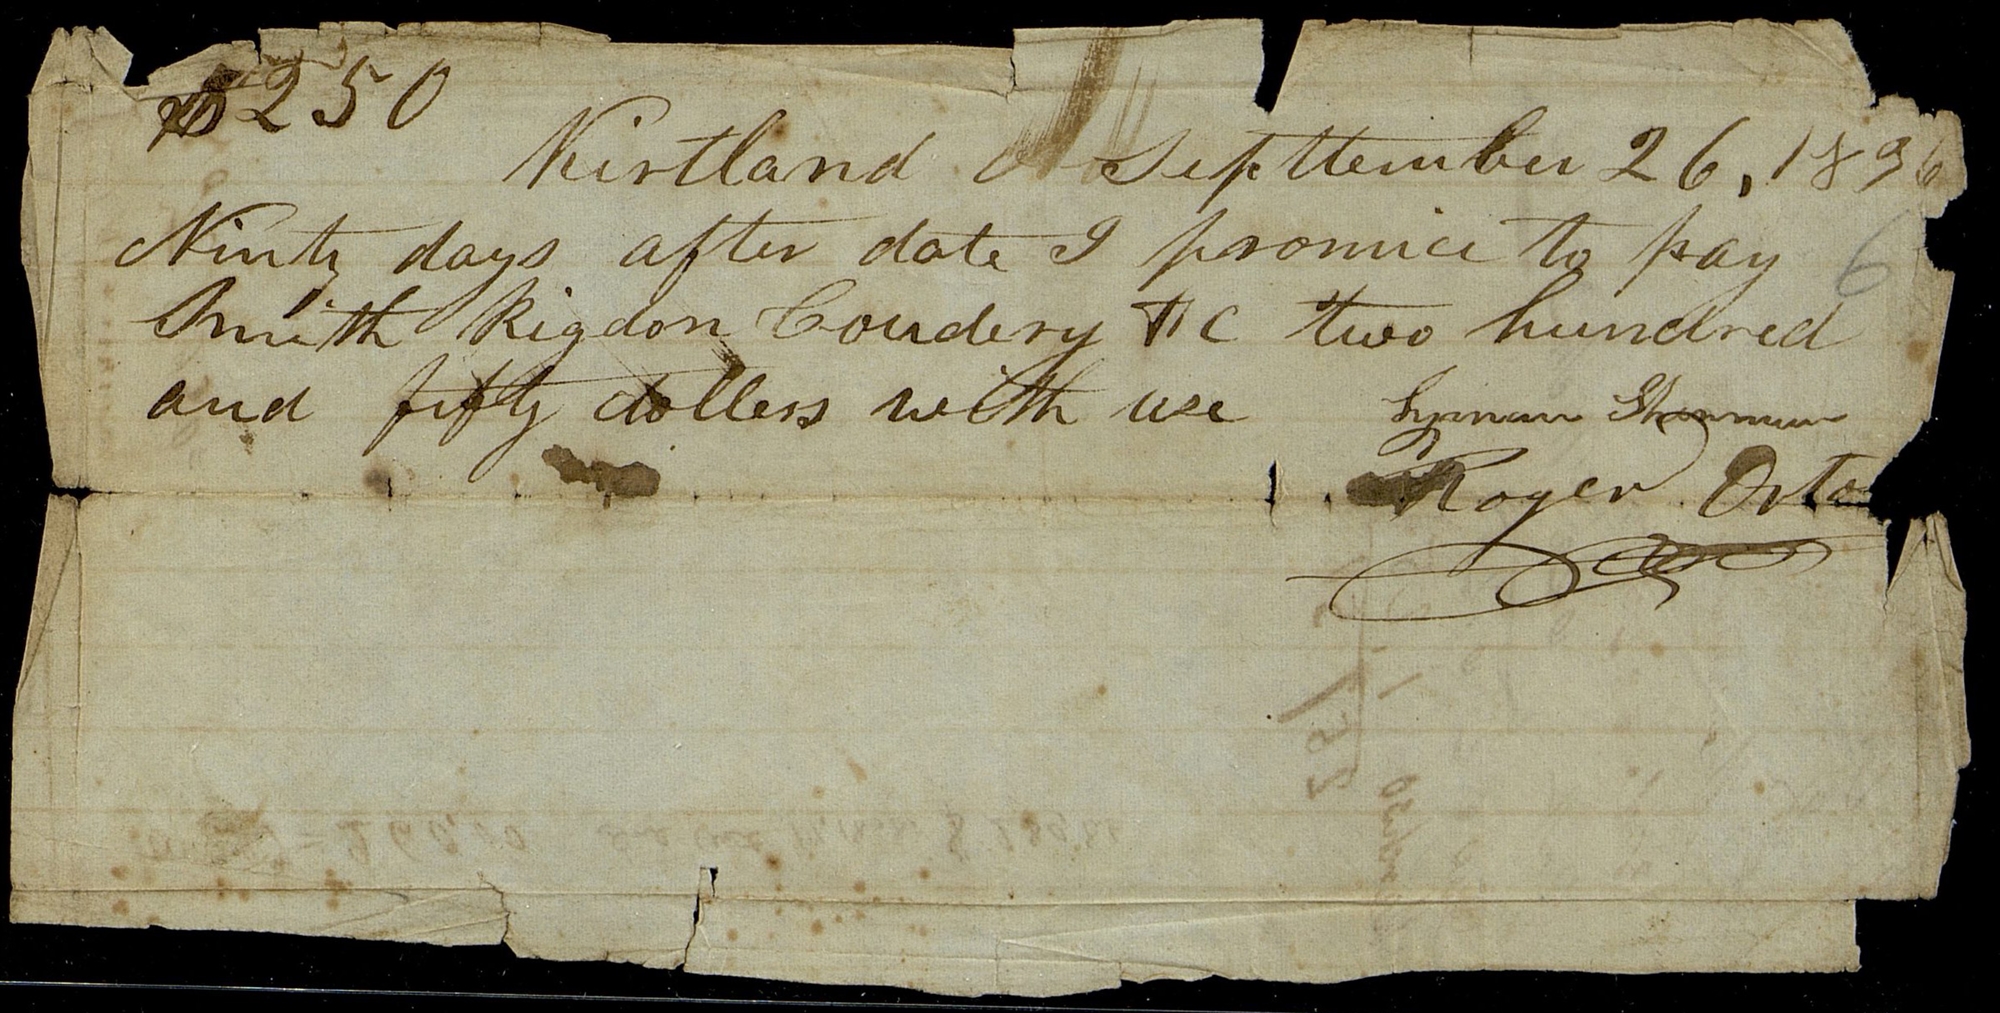 $250
Kirtland O September 26, 1836
Ninty days after date I promice to pay
6
Smith Rigdon Coudery & C two hundred
and fifty dollers with use
Lyman Sherman
Roger Orto